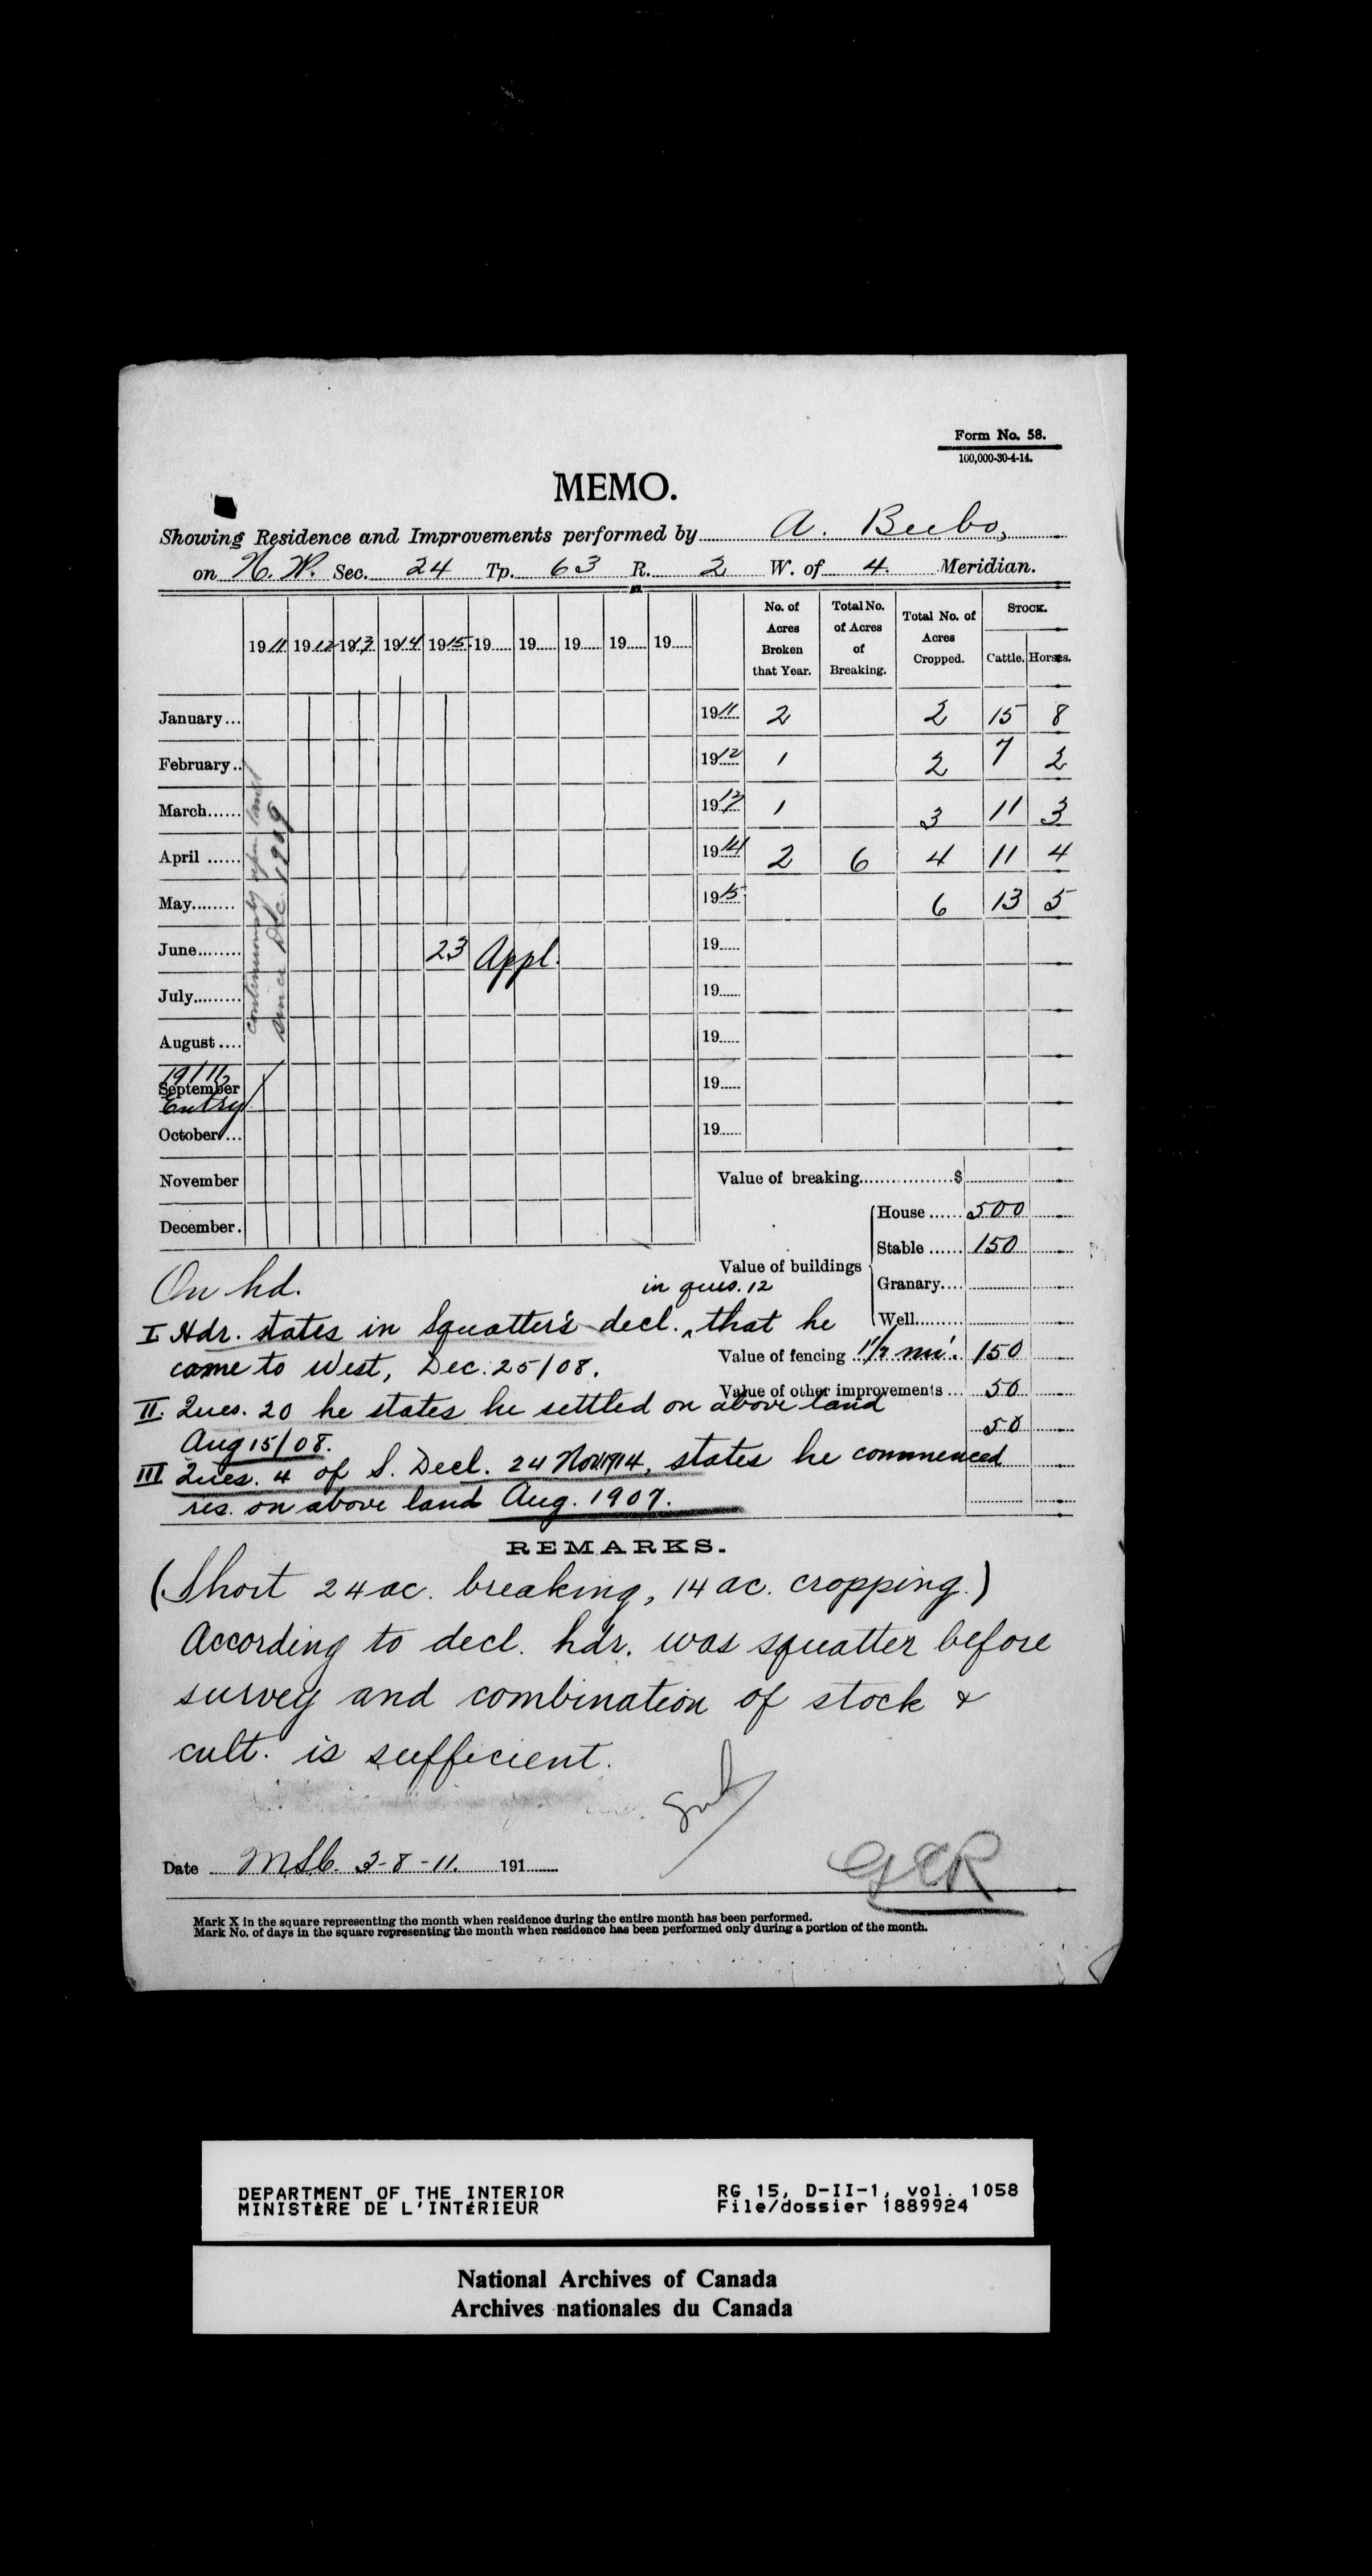 Form No. 58.
100,000-30-4-14.
MEMO.
Showing Residence and Improvements performed by A. Beebo,
on N. W. Sec. 24 Tp. 63 R. 2 W. of 4. Meridian.
1911 1912 1913 1914 1915 19 19 19 19 19
No. of Acres Broken that Year. Total No. of Acres of Breaking. Total No. of Acres Cropped. STOCK. Cattle. Horses.
January... 1911 2 2 15 8
February.. 1912 1 2 7 2
March...... 1913 1 3 11 3
April ...... 1914 2 6 4 11 4
May........ 1915 6 13 5
continuously upon land
since Dec 1909
June........ 23 Appl. 19.....
July......... 19.....
August.... 19.....
19/11
September 19.....
Entry
October... 19.....
November
December.
Value of breaking..................$
Value of buildings
House...... 500
Stable...... 150
Granary....
Well.........
Value of fencing 1 1/2 mi. 150
Value of other improvements... 50
50
On hd.
in ques. 12
I Hdr. states in Squatter's decl. that he
came to West, Dec. 25/08.
II. Ques. 20 he states he settled on above land
Aug 15/08.
III Ques. 4 of S. Decl. 24 Nov. 1914, states he commenced
res. on above land Aug. 1907.
REMARKS.
(Short 24 ac. breaking, 14 ac. cropping.)
According to decl. hdr. was squatter before
survey and combination of stock &
cult. is sufficient.
Date 3-8-11. 191
GER
Mark X in the square representing the month when residence during the entire month has been performed.
Mark No. of days in the square representing the month when residence has been performed only during a portion of the month.
DEPARTMENT OF THE INTERIOR
MINISTÈRE DE L'INTÉRIEUR
RG 15, D-II-1, vol. 1058
File/dossier 1889924
National Archives of Canada
Archives nationales du Canada